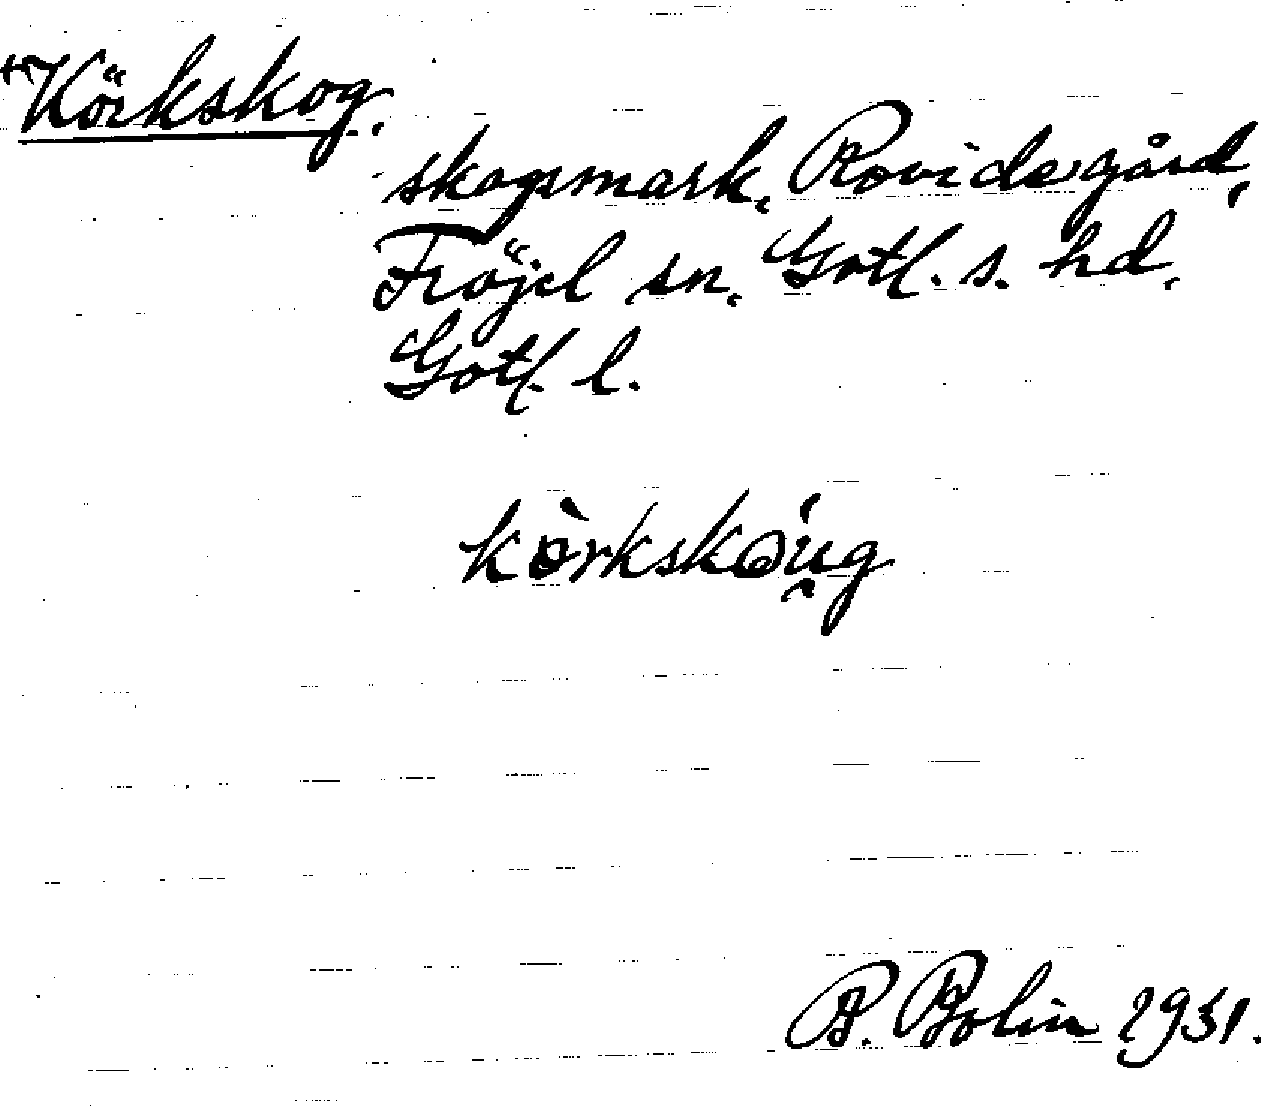 +Körkskog.
skogsmark, Rovidegård,
Fröjel sn. Gotl. s. hd,
Gotl. l.
kòrkskǝu̯g
B. Bolin 1931.